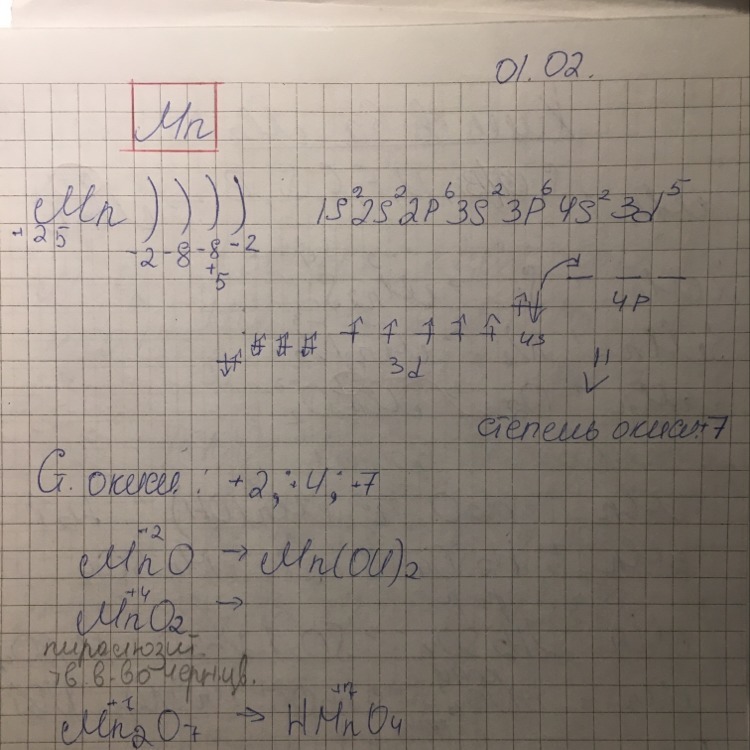 01.02.
Mn
+25 Mn ) ) ) ) 1s²2s²2p⁶3s²3p⁶4s²3d⁵
-2 -8 -8 -2
+5
4p
4s
3d
степень окисл. +7
Ст. окисл: +2; +4; +7
+2
MnO → Mn(OH)₂
+4
MnO₂ →
пиролюзит.
тв. в-во черн цв.
+7 +7
Mn₂O₇ → HMnO₄